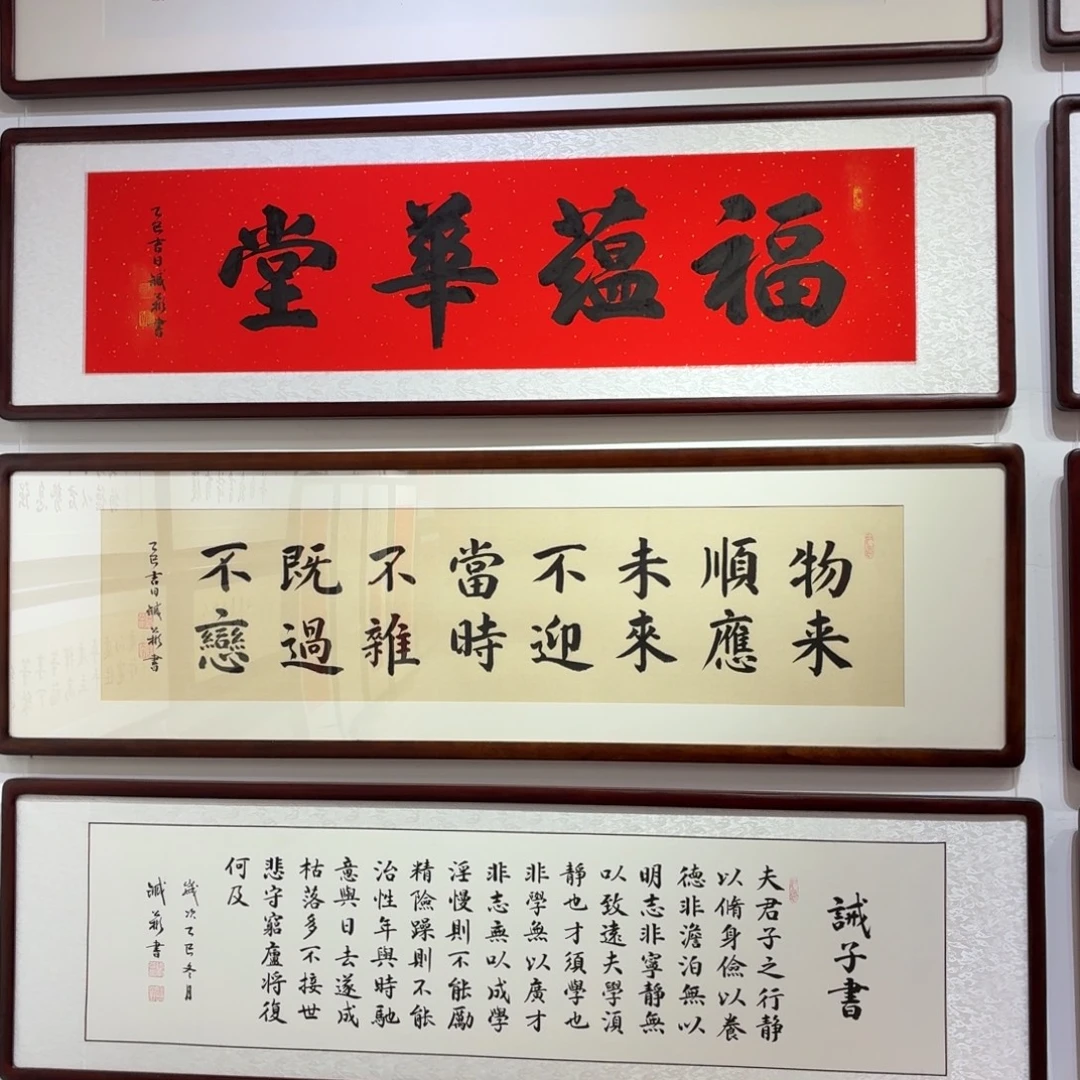 福蕴華堂
乙巳吉日 書
物来
順應
未來
不迎
當時
不雜
既過
不戀
乙巳吉日 書
誡子書
夫君子之行静
以脩身儉以養
德非澹泊無以
明志非寧静無
以致遠夫學湏
静也才須學也
非學無以廣才
非志無以成學
淫慢則不能勵
精險躁則不能
治性年與時馳
意與日去遂成
枯落多不接世
悲守窮廬將復
何及
歲次乙巳冬月
書